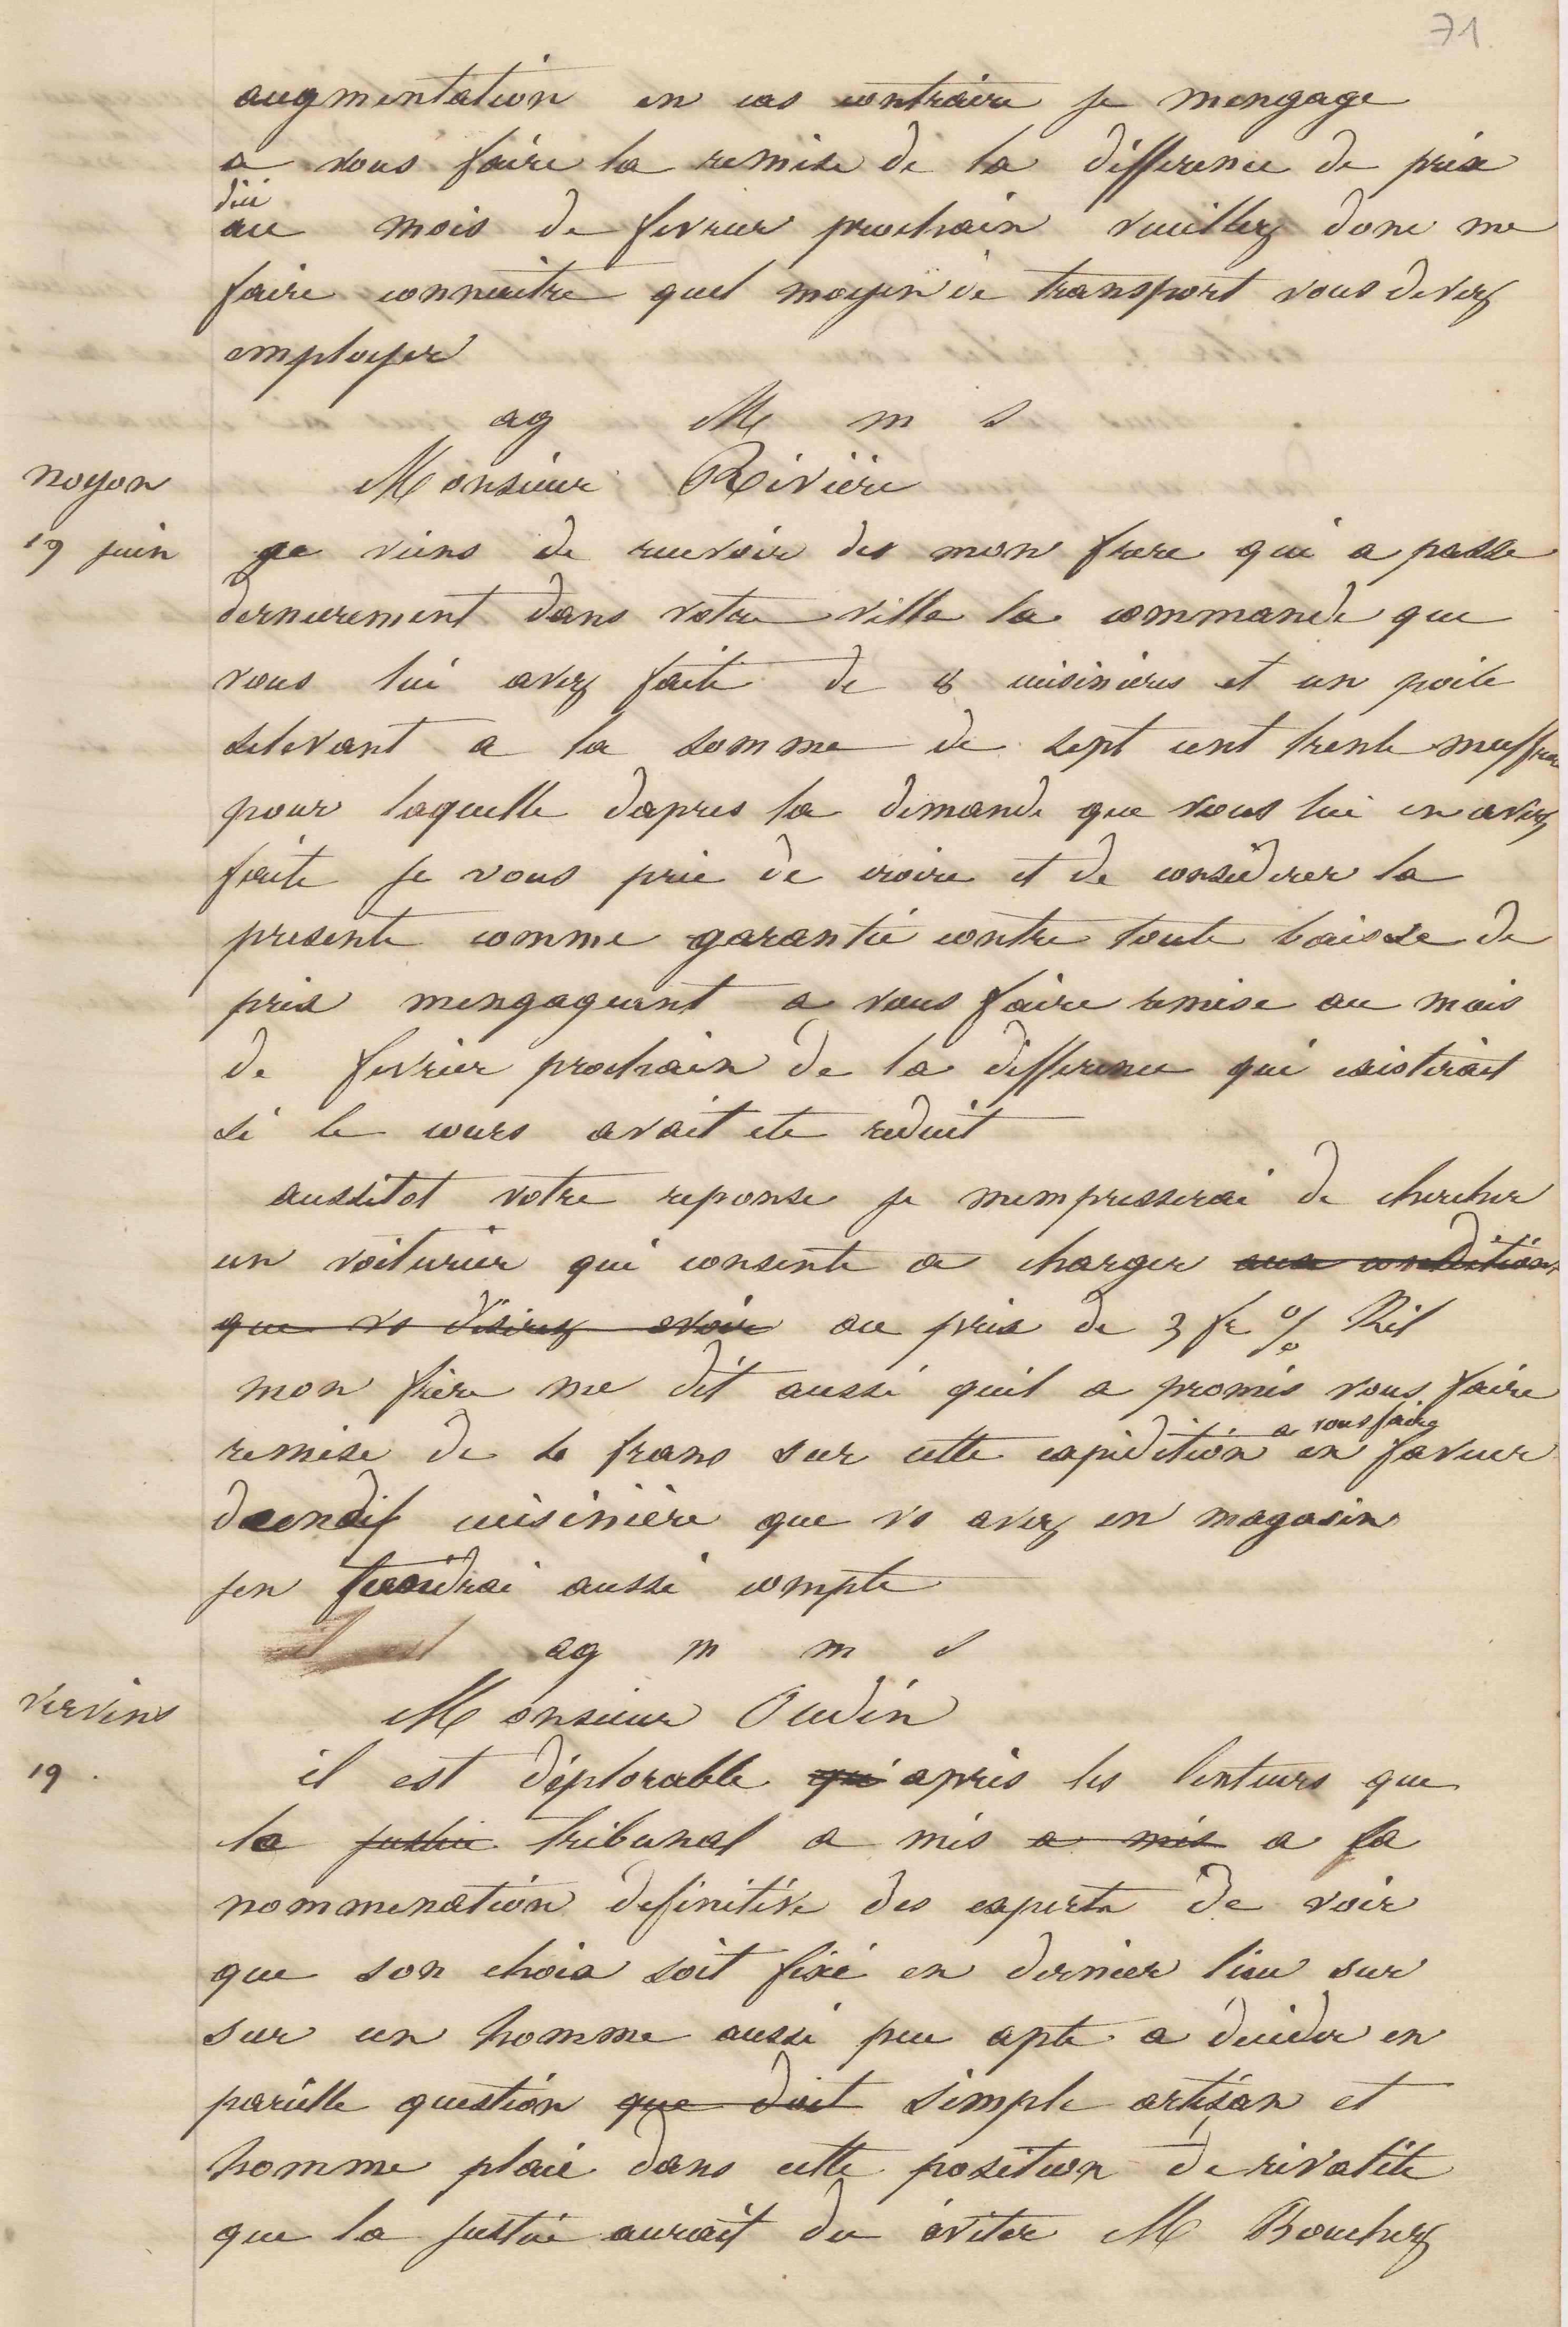 71
augmentation en cas contraire je mengage
a vous faire la remise de la difference de prix
dici
au mois de fevrier prochain veuillez donc me
faire connaitre quel moyen de transport vous devez
employer
ag M m s
noyon
Monsieur Rivière
19 juin
je viens de recevoir de mon frere qui a passe
dernierement dans votre ville la commande que
vous lui avez faite de 8 cuisinieres et un poile
selevant a la somme de sept cent trente neuf francs
pour laquelle dapres la demande que vous lui en avez
faite je vous prie de croire et de considerer la
presente comme garantie contre toute baisse de
prix mengageant a vous faire remise au mois
de fevrier prochain de la difference qui existerait
si le cours avait ete reduit
aussitot votre reponse je mempresserai de chercher
un voiturier qui consente a charger aux conditions
que vs désirez avoir au prix de 3 fr % Kil
mon frère me dit aussi quil a promis vous faire
a vous faire
remise de frans sur cette expédition en faveur
cuisinière que vs avez en magasin
jen tiendrai aussi compte
il est ag m m s
vervins
Monsieur Oudin
19
il est déplorable qu'après les lenteurs que
le justice tribunal a mis a mis a la
nommination definitive des experts de voir
que son choix soit fixé en dernier lieu sur
sur un homme aussi peu apte a décider en
pareille question que doit simple artisan et
homme placé dans cette position de rivalité
que la justice aurait du éviter M Boucher